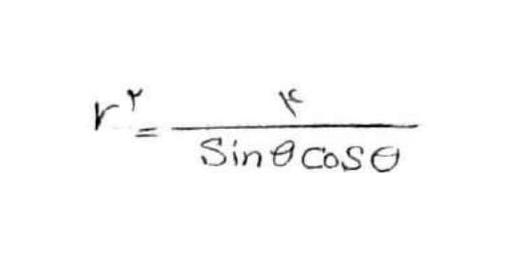 r^۲ = ۴ / Sinθ cosθ